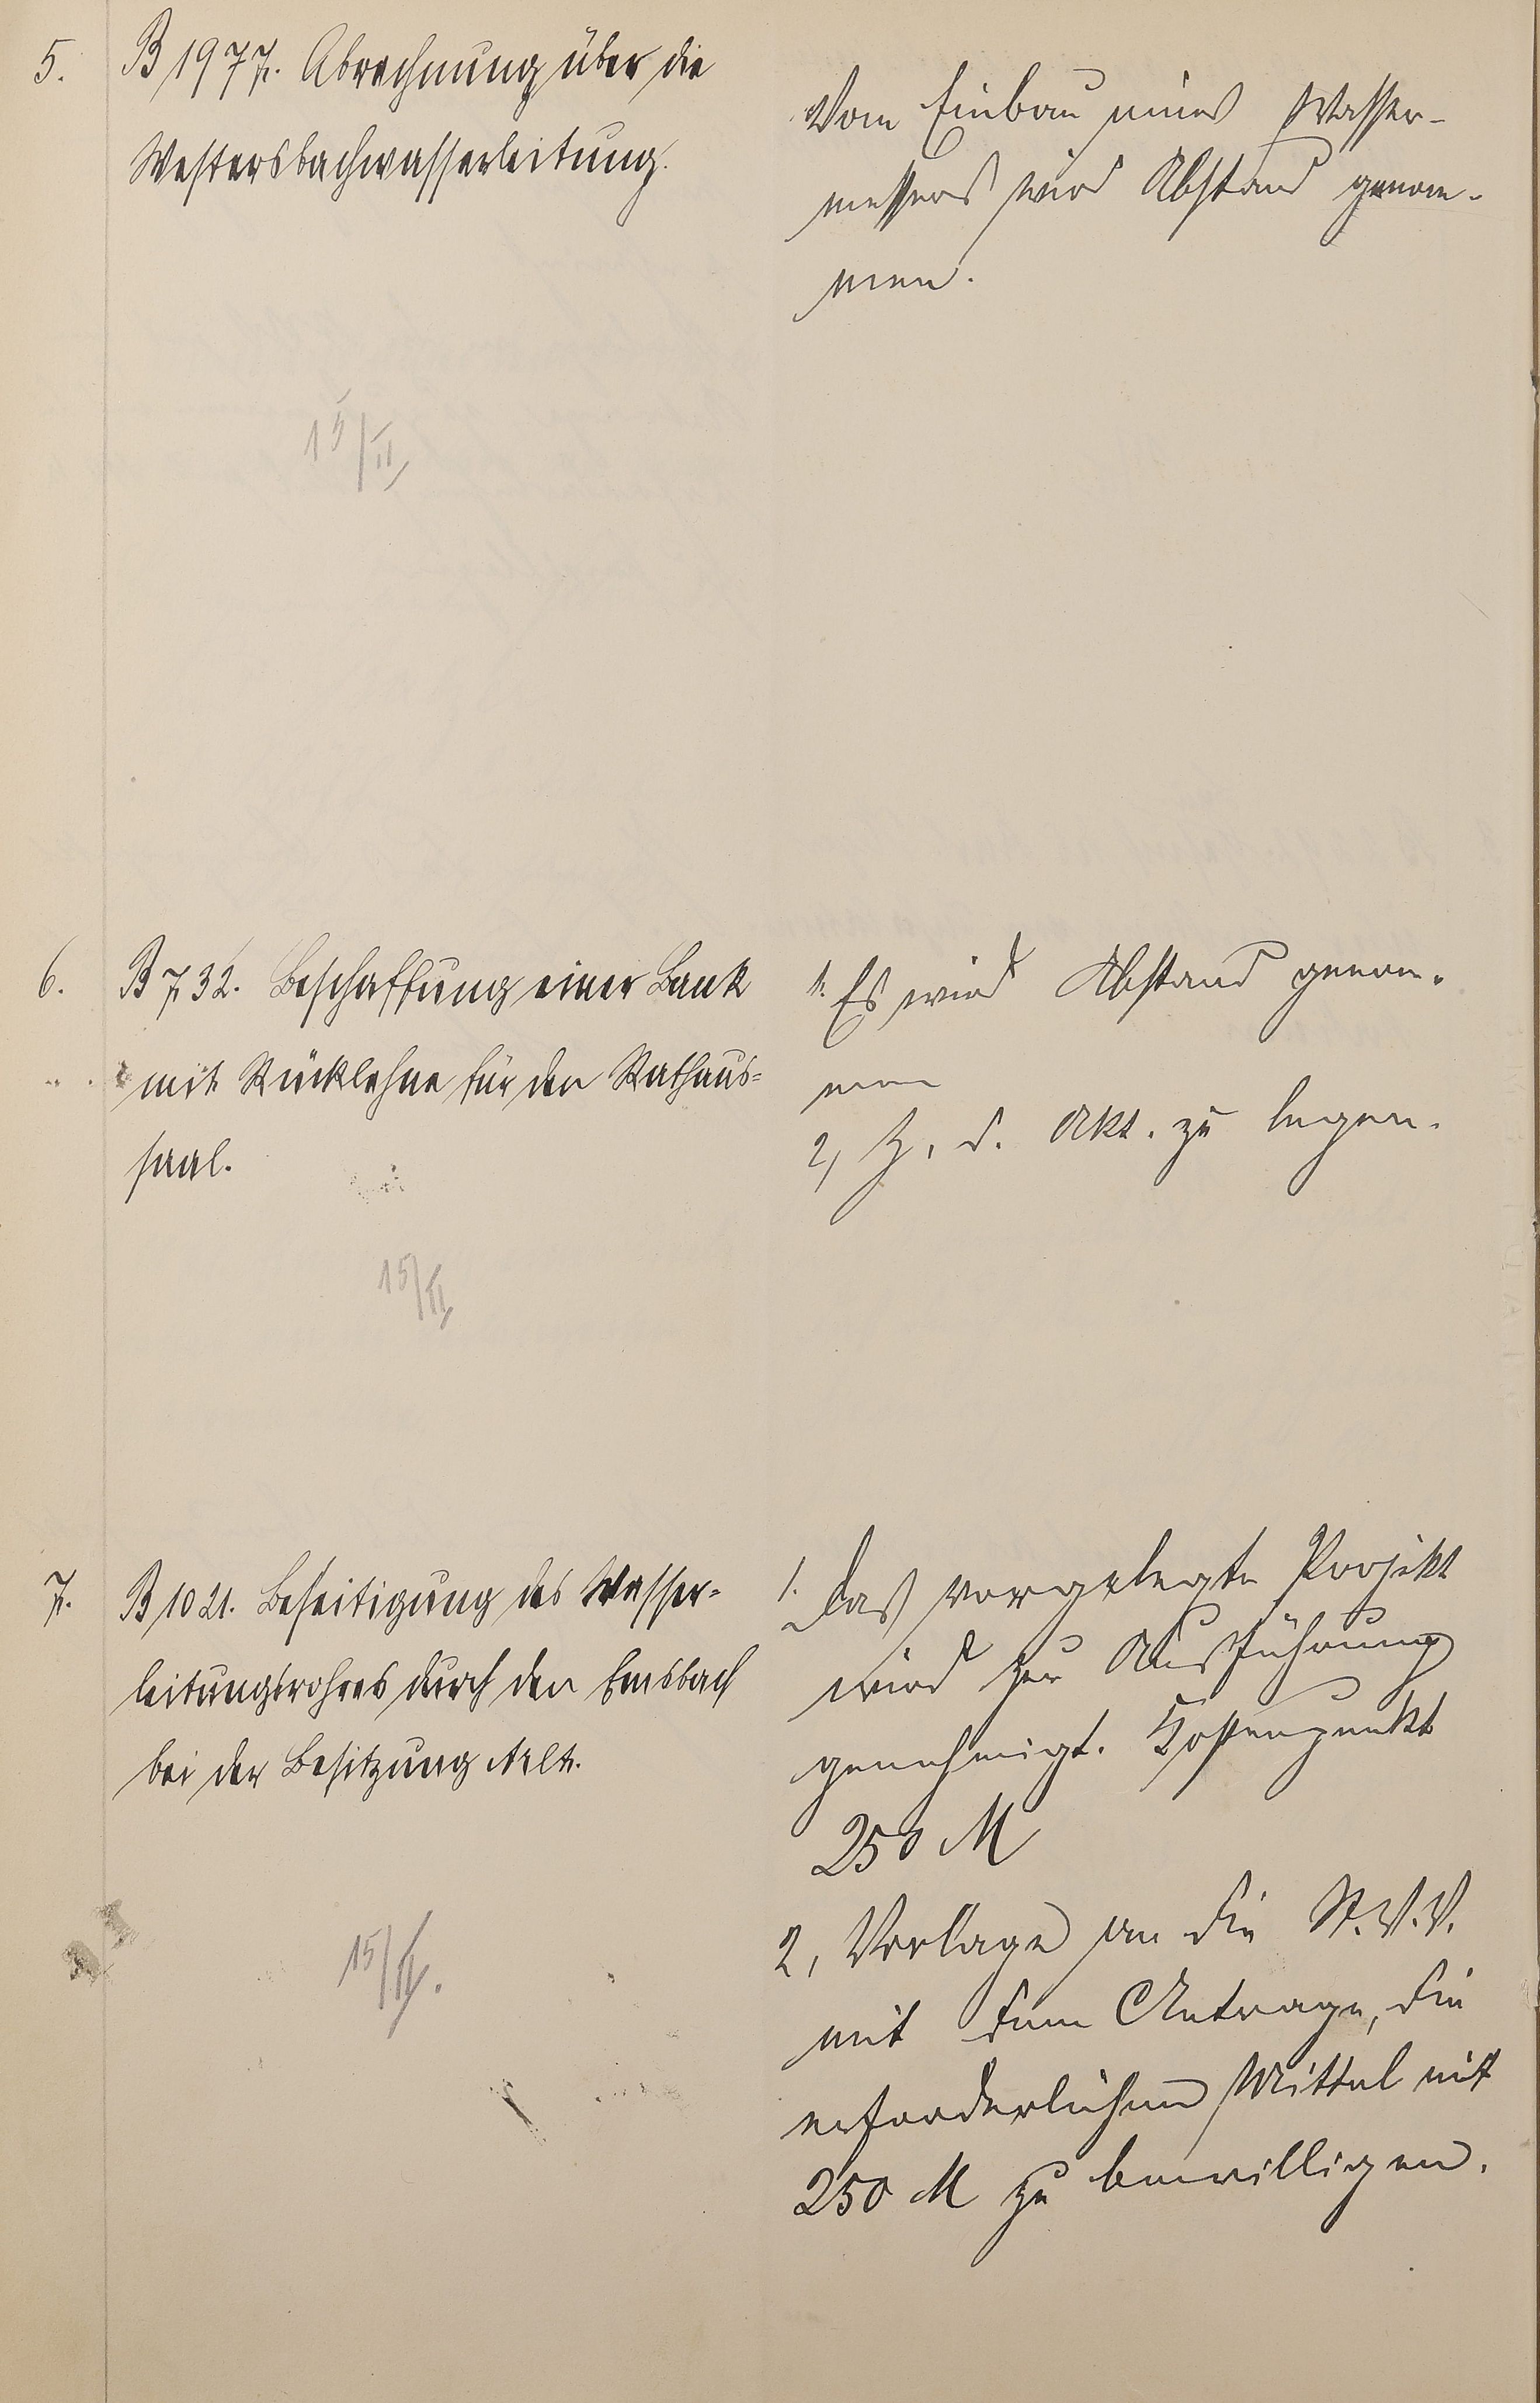 5.
B 1977. Abrechnung über die
Westersbachwasserleitung.
Vom Einbau eines Wasser-
messers wird Abstand genom-
men.
15/II.
6.
B 732. Beschaffung einer Bank
mit Rücklehne für den Rathaus=
saal.
1. Es wird Abstand genom-
men
2, Z. d. Akt. zu legen.
15/II.
7.
B 1021. Beseitigung des Wasser=
leitungsrohres durch den Emsbach
bei der Besitzung Arlt.
1. Das vorgelegte Projekt
wird zur Ausführung
genehmigt. Kostenpunkt
250 M
2, Vorlage an die St. V. V.
mit dem Antrage, die
erforderlichen Mittel mit
250 M zu bewilligen.
15/II.